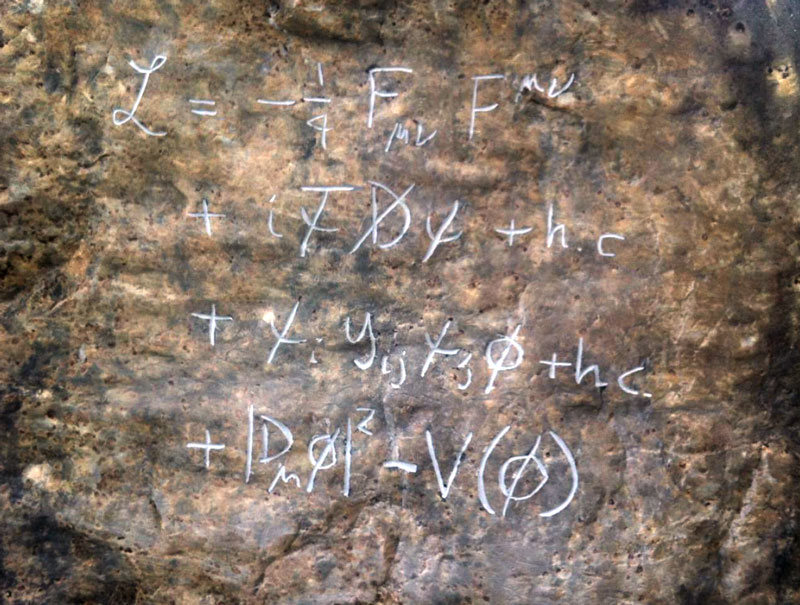 ℒ = -1/4 F_μν F^μν
+ iψ̅D̸ψ + h.c
+ χ_i y_ij χ_j φ + hc
+ |D_μ φ|² - V(φ)